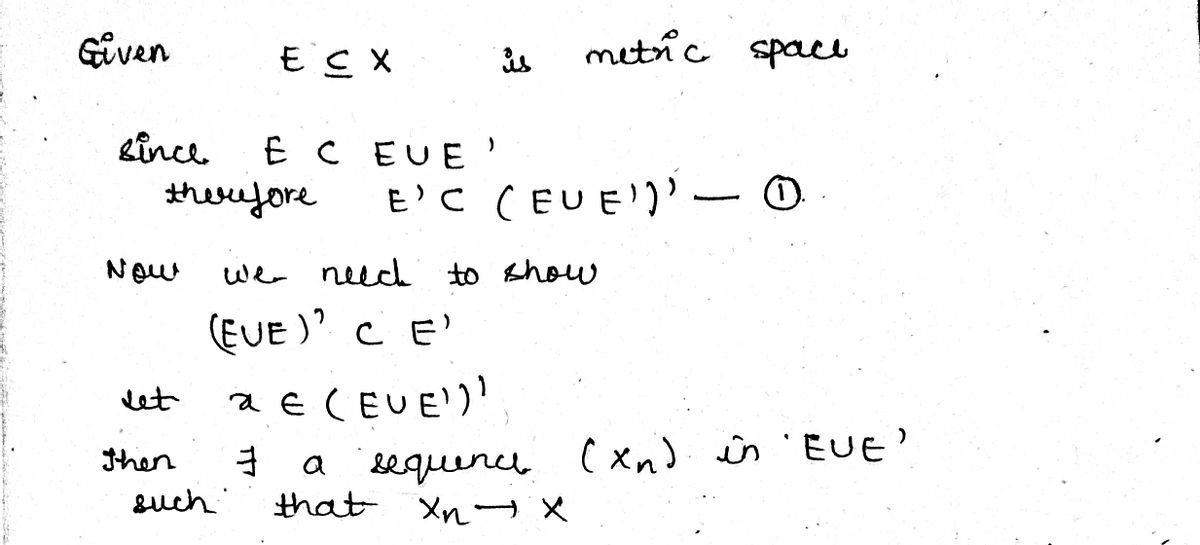 Given E ⊆ X is metric space
since E ⊂ E∪E'
therefore E' ⊂ (E∪E')' — ①.
Now we need to show
(E∪E)' ⊂ E'
let x ∈ (E∪E')'
Then ∃ a sequence (xn) in E∪E'
such that xn → x